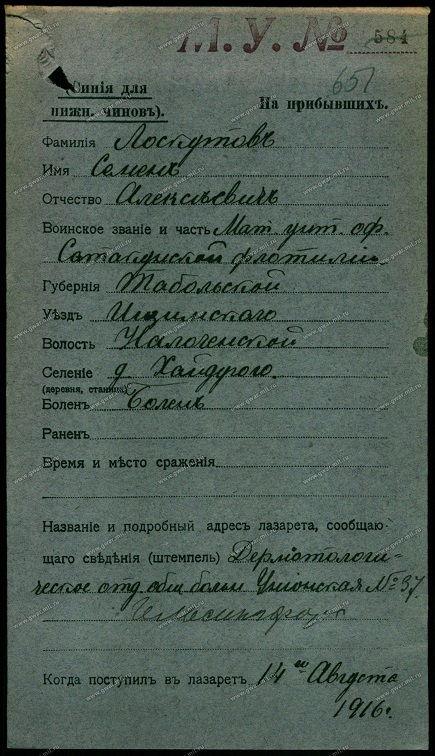 М. У. № 584
651
Синія для
нижн. чиновъ).
На прибывшихъ.
Фамилія Лоскутовъ
Имя Семенъ
Отчество Алексѣевичъ
Воинское званіе и часть Мат. унт. оф.
Сатакунской флотиліи
Губернія Табольской
Уѣздъ Ишимскаго
Волость Налоченской
Селеніе д. Хайдурого
(деревня, станица)
Боленъ Боленъ
Раненъ
Время и мѣсто сраженія
Названіе и подробный адресъ лазарета, сообщаю-
щаго свѣдѣнія (штемпель) Дерматологи-
ческое отд. общ. больн Уніонская № 37
Гельсингфорс
Когда поступил въ лазаретъ 14го Августа
1916г.
www.gwar.mil.ru